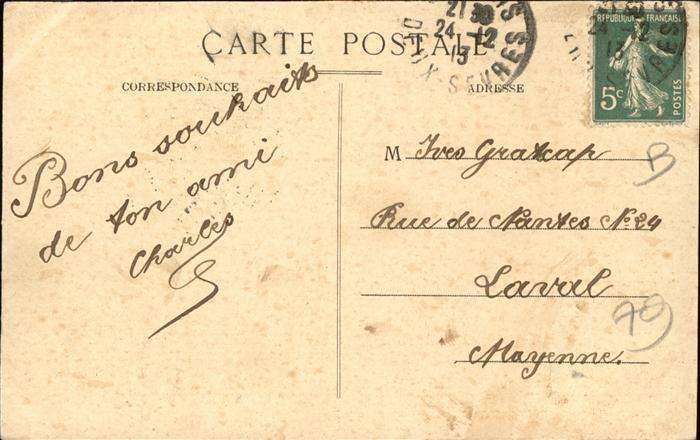 CARTE POSTALE
CORRESPONDANCE
Bons souhaits
de ton ami
Charles
ADRESSE
M Yves Gratcap
Rue de Nantes No 24
Laval
Mayenne.
21 30
24-12
13
SEVRES
REPUBLIQUE FRANÇAISE
5c
POSTES
B
79